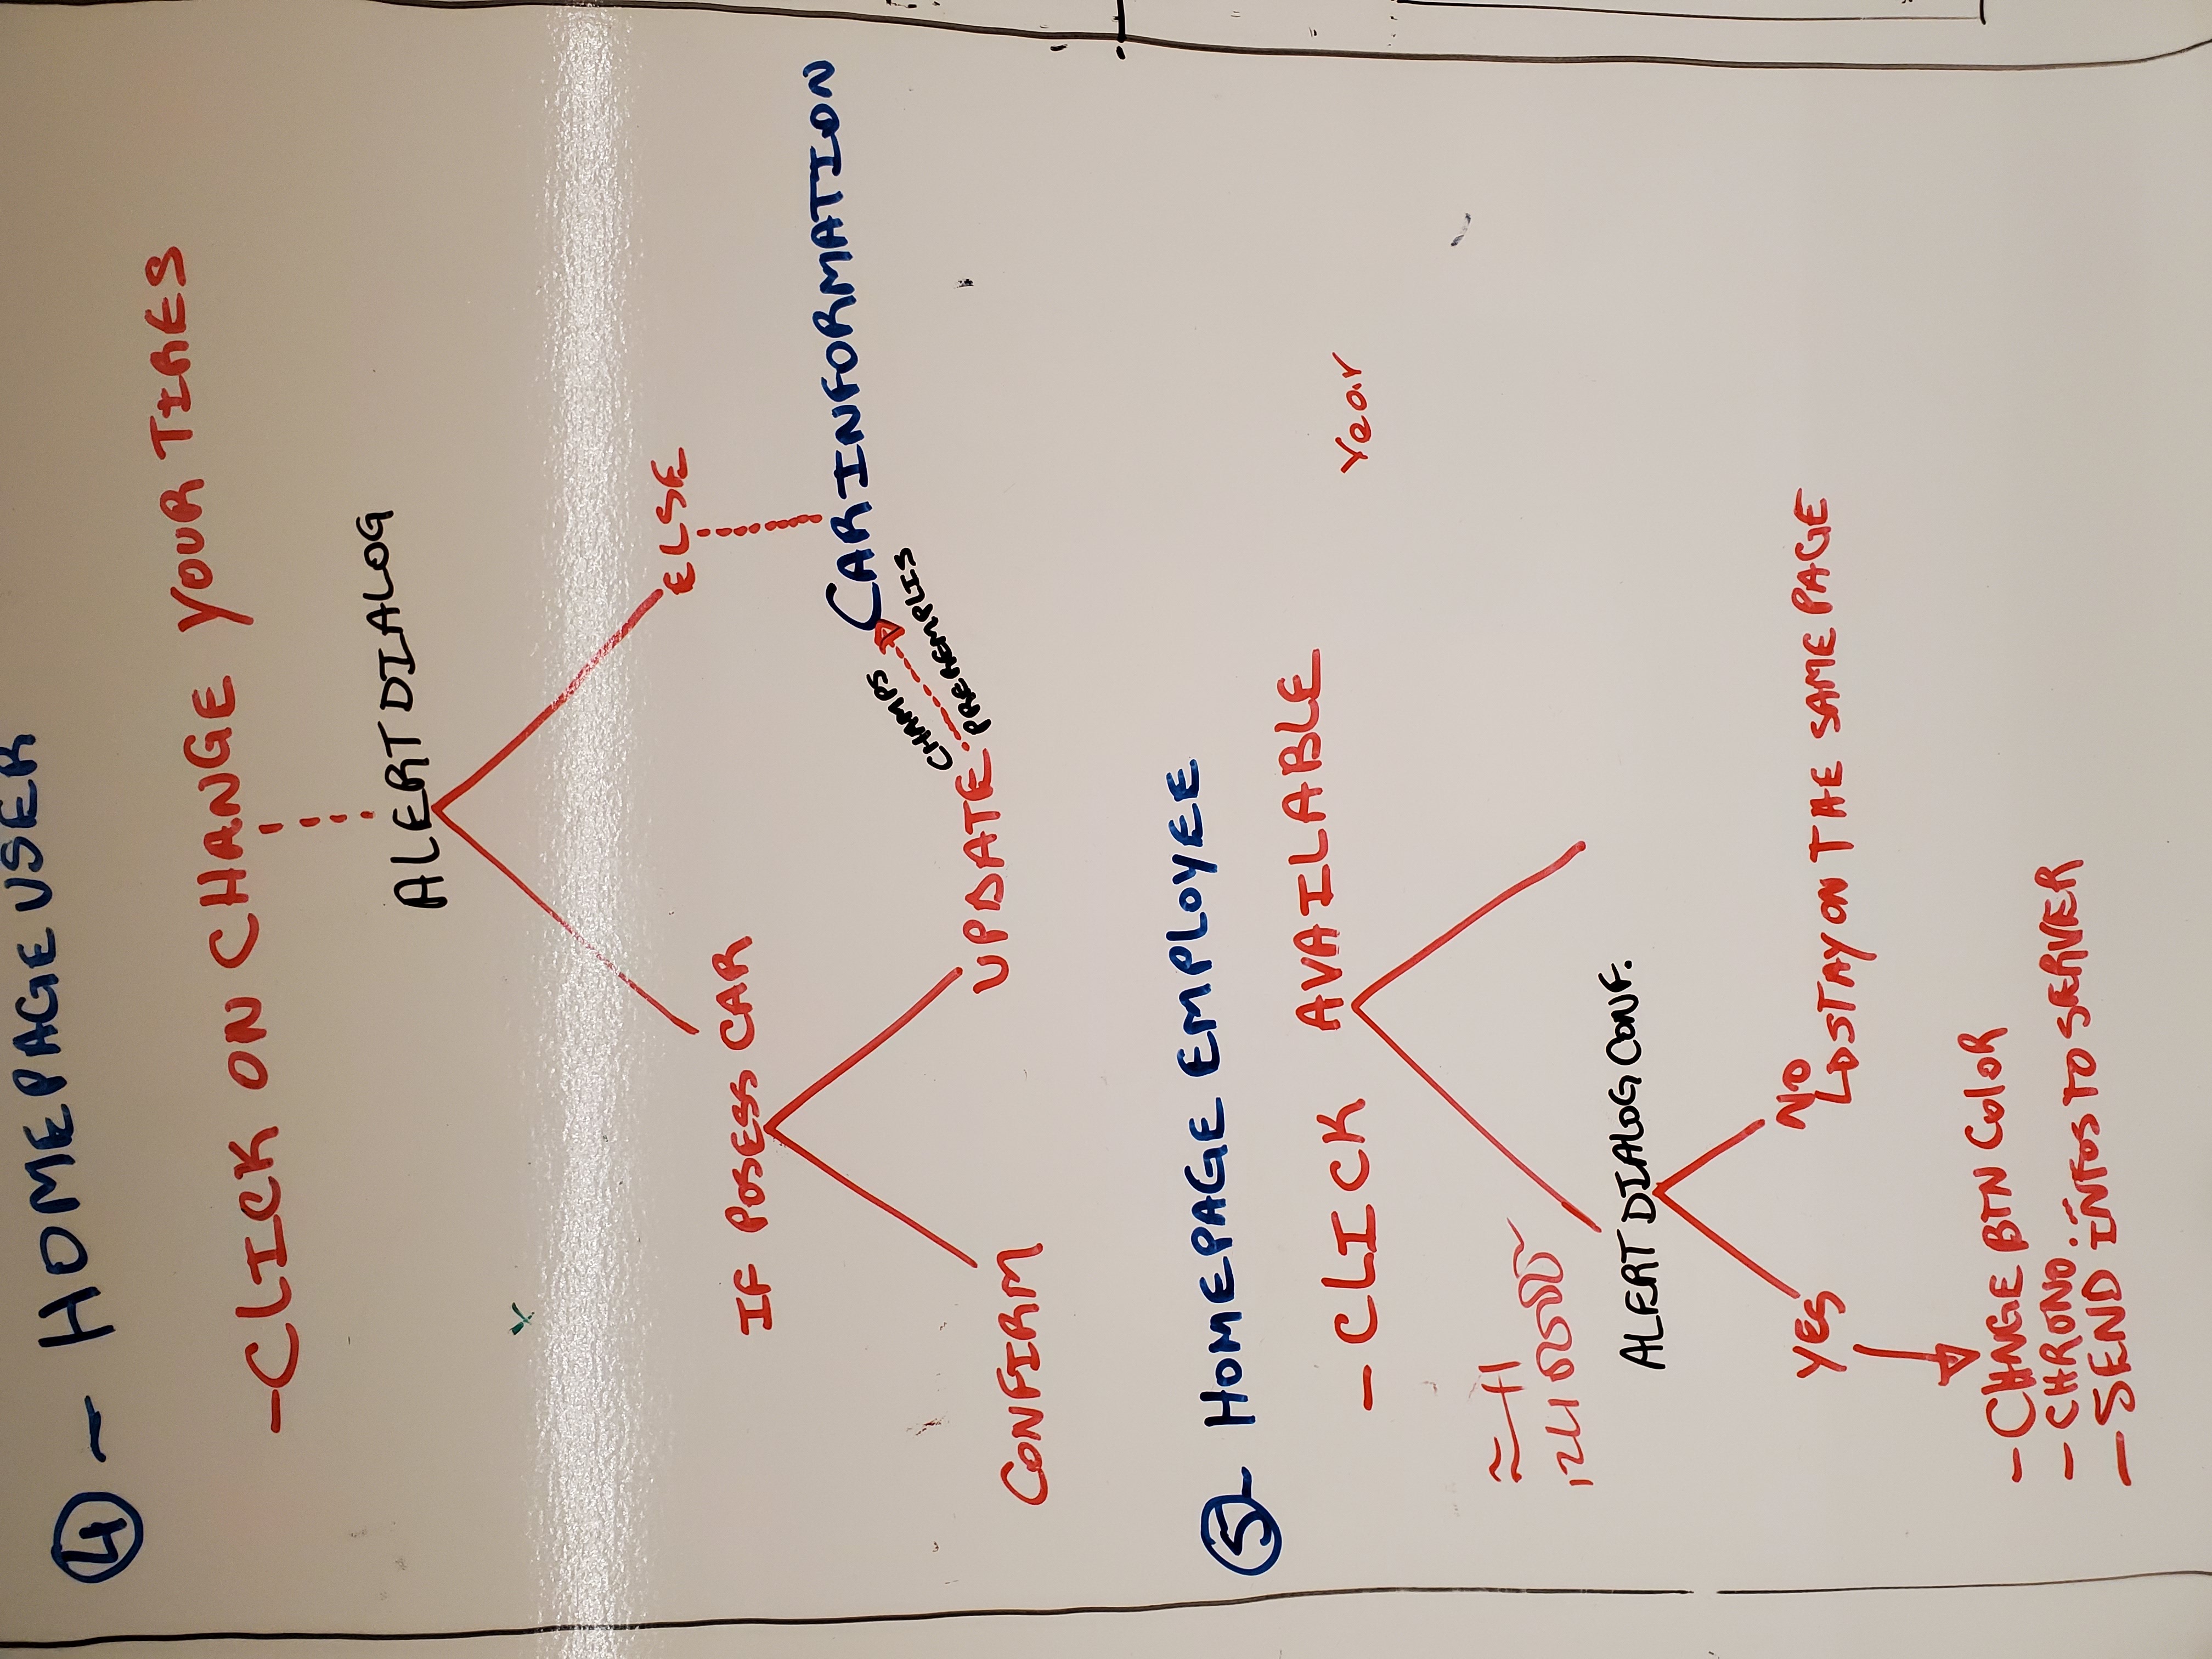 ④ - HOMEPAGE USER
- CLICK ON CHANGE YOUR TIRES
ALERTDIALOG
ELSE
IF POSESS CAR
CARINFORMATION
CHAMPS
PREREMPLIS
UPDATE
CONFIRM
⑤ - HOMEPAGE EMPLOYEE
- CLICK AVAILABLE
Year
ALERT DIALOG CONF.
YES
NO
STAY ON THE SAME PAGE
- CHNGE BTN COLOR
- CHRONO...
- SEND INFOS TO SERVER